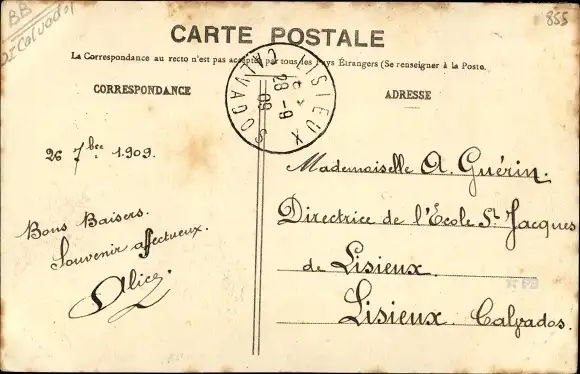 BB
DI Calvados
855
CARTE POSTALE
La Correspondance au recto n'est pas acceptée par tous les Pays Étrangers (Se renseigner à la Poste.
CORRESPONDANCE
ADRESSE
LISIEUX
28-9
09
CALVADOS
26 7bre 1909.
Bons Baisers.
Souvenir affectueux.
Alice.
Mademoiselle A. Guérin.
Directrice de l'École St Jacques
de Lisieux.
Lisieux. Calvados.